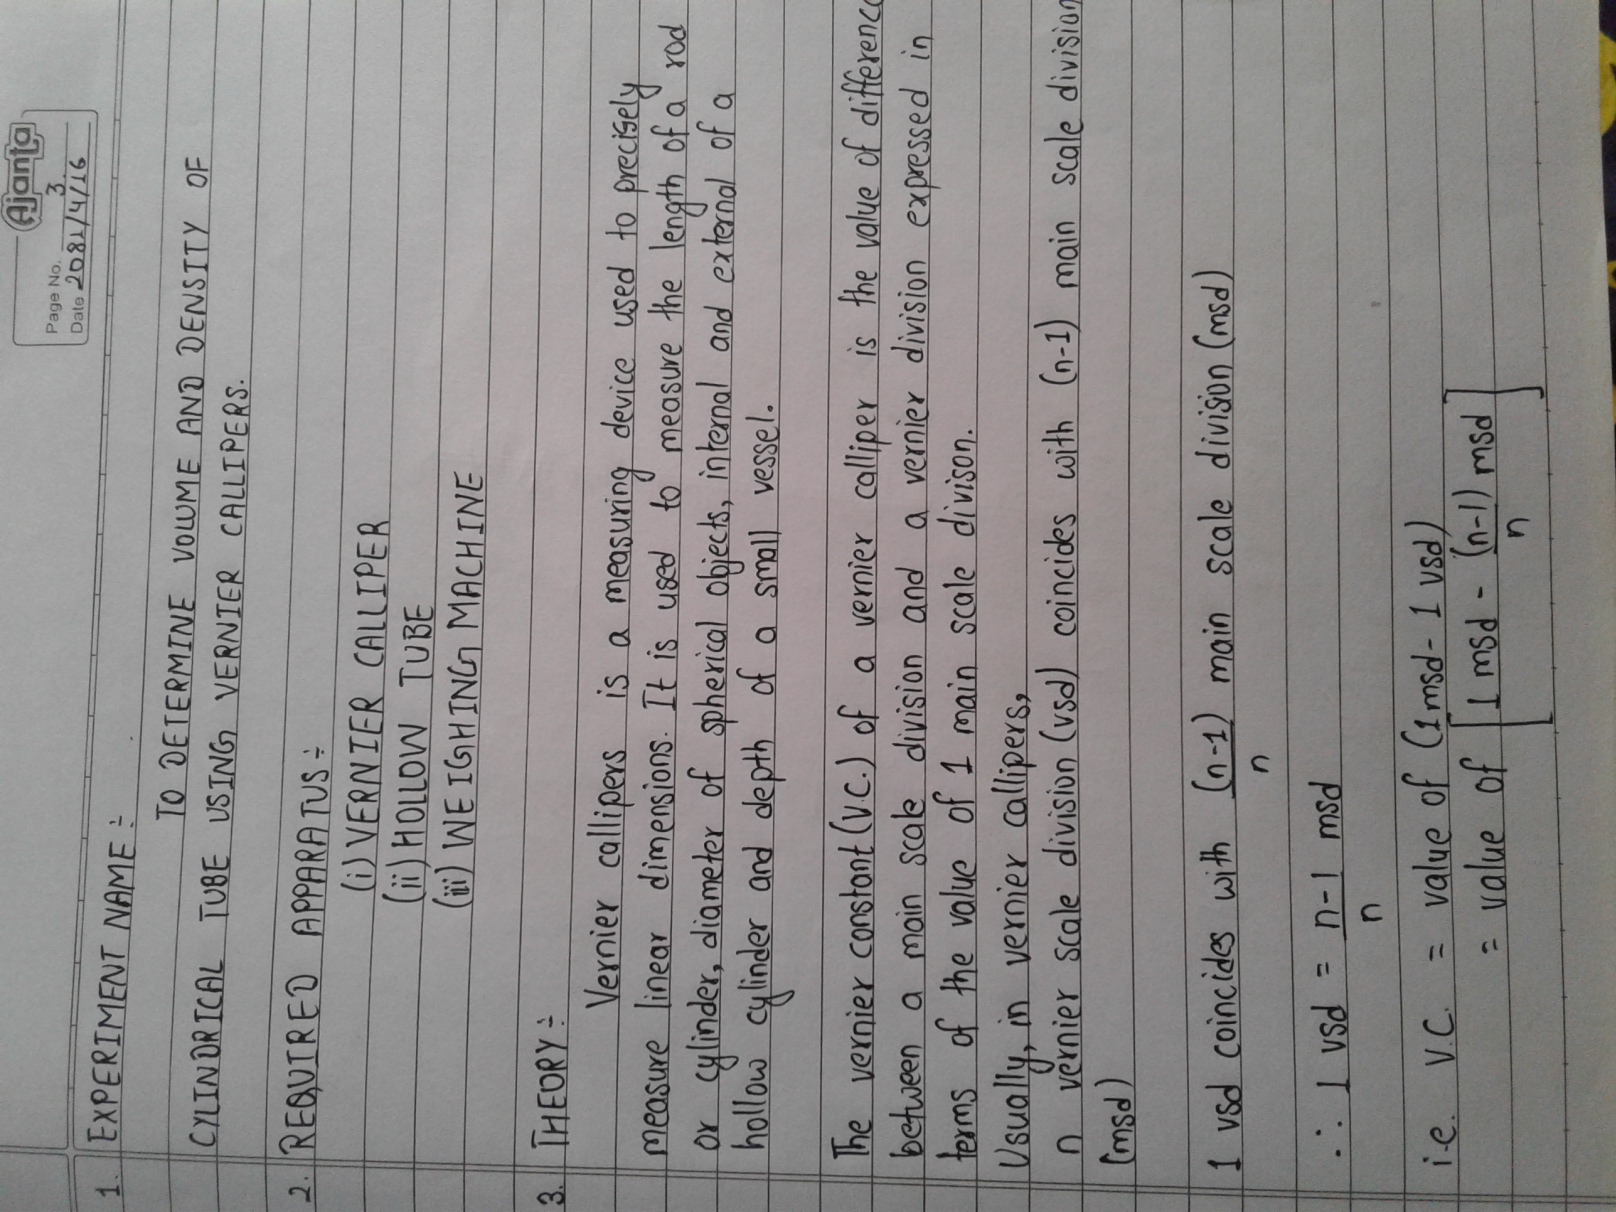 Ajanta
Page No. 3.
Date 2081/4/16
1. EXPERIMENT NAME :-
TO DETERMINE VOLUME AND DENSITY OF
CYLINDRICAL TUBE USING VERNIER CALLIPERS.
2. REQUIRED APPARATUS :-
(i) VERNIER CALLIPER
(ii) HOLLOW TUBE
(iii) WEIGHING MACHINE
3. THEORY :-
Vernier callipers is a measuring device used to precisely
measure linear dimensions. It is used to measure the length of a rod
or cylinder, diameter of spherical objects, internal and external of a
hollow cylinder and depth of a small vessel.
The vernier constant (V.C.) of a vernier calliper is the value of difference
between a main scale division and a vernier division expressed in
terms of the value of 1 main scale divison.
Usually, in vernier callipers,
n vernier scale division (vsd) coincides with (n-1) main scale division
(msd)
1 vsd coincides with (n-1)/n main scale division (msd)
∴ 1 vsd = n-1/n msd
i.e. V.C. = value of (1msd - 1 vsd)
= value of [1 msd - (n-1)/n msd]